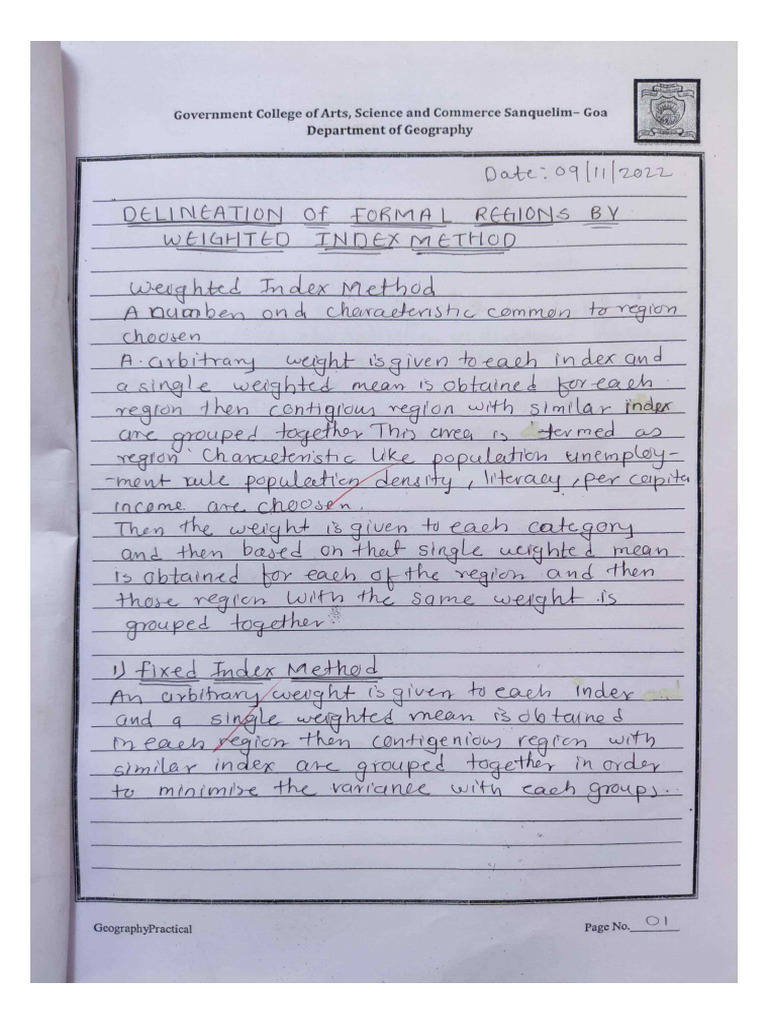 Government College of Arts, Science and Commerce Sanquelim– Goa
Department of Geography
Date: 09/11/2022
DELINEATION Of FORMAL REGIONS BY
WEIGHTED INDEX METHOD
Weighted Index Method
A numben and characteristic common to region
choosen
A. arbitrary weight is given to each index and
a single weighted mean is obtained for each
region then contigious region with similar index
are grouped together This area is termed as
region Characteristic like population unemploy-
-ment rule population density, literacy, per capita
income are choosen.
Then the weight is given to each category
and then based on that single weighted mean
is obtained for each of the region and then
those region with the same weight is
grouped together
1) fixed Index Method
An arbitrary weight is given to each index
and a single weighted mean is obtained
in each region then contigenious region with
similar index are grouped together in order
to minimise the variance with each groups.
GeographyPractical
Page No. 01